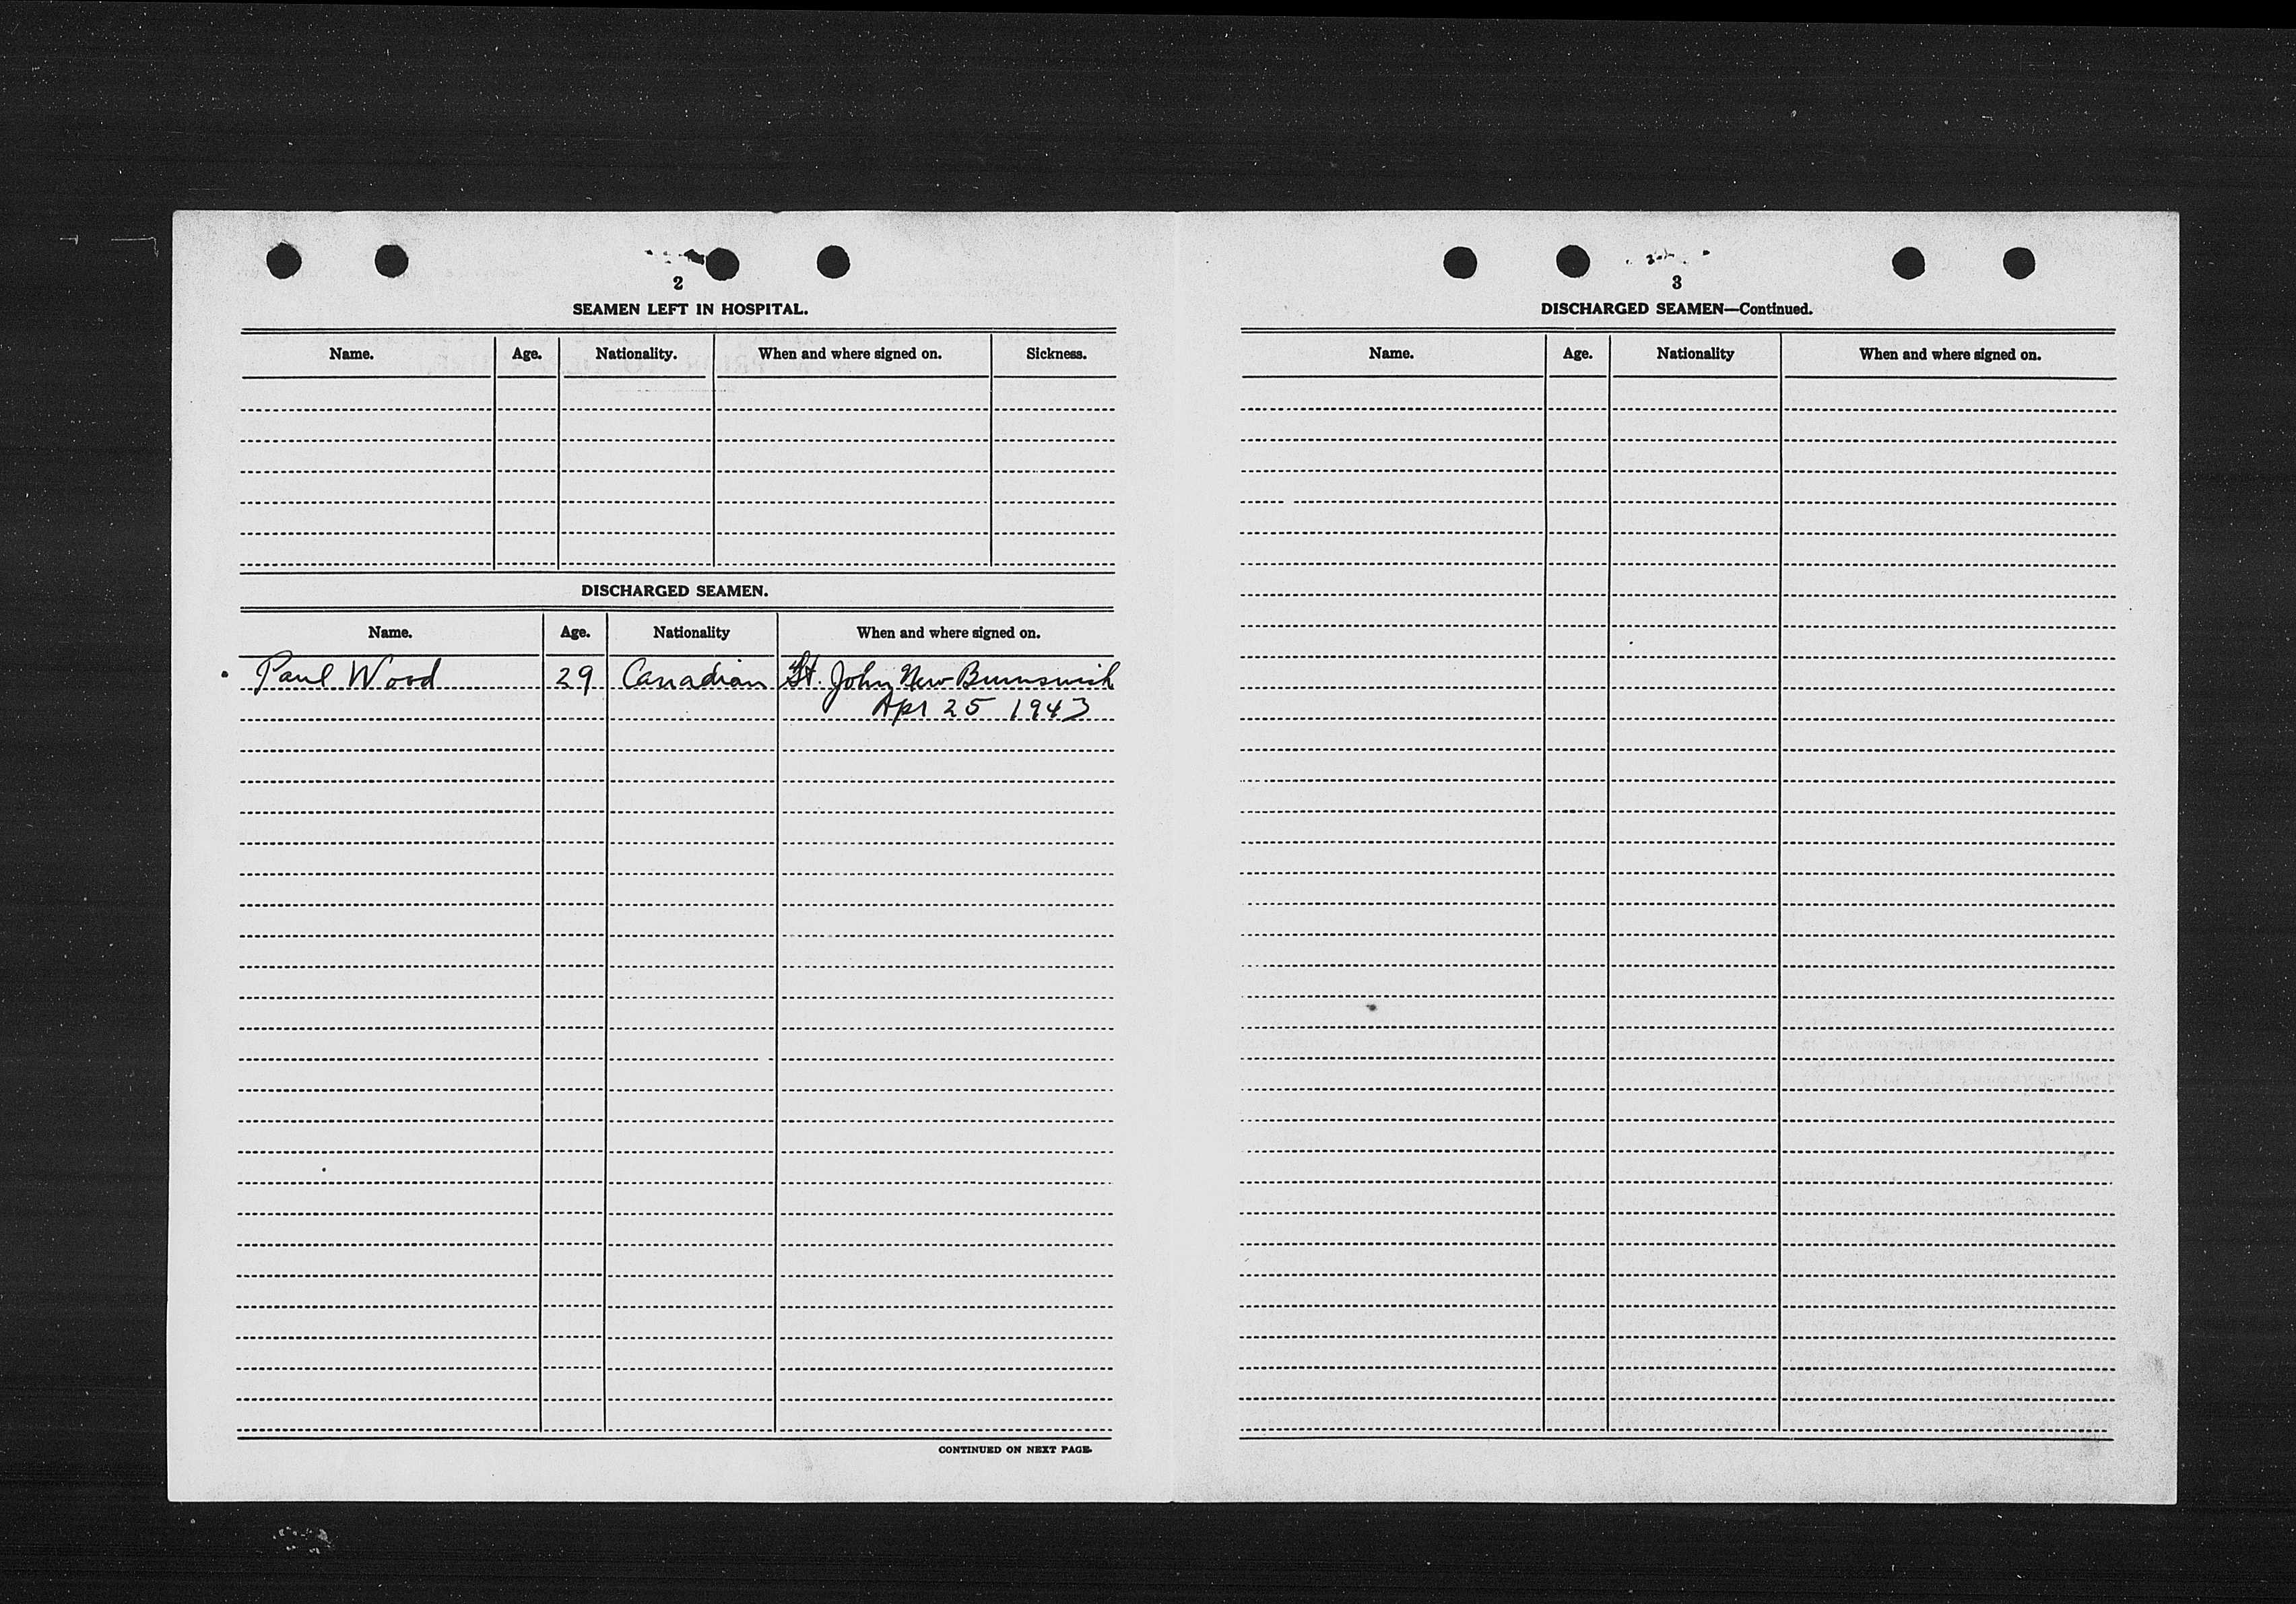 2
SEAMEN LEFT IN HOSPITAL.
Name. Age. Nationality. When and where signed on. Sickness.
DISCHARGED SEAMEN.
Name. Age. Nationality When and where signed on.
Paul Wood 29 Canadian St. John New Brunswick
Apr 25 1943
CONTINUED ON NEXT PAGE.
3
DISCHARGED SEAMEN—Continued.
Name. Age. Nationality When and where signed on.